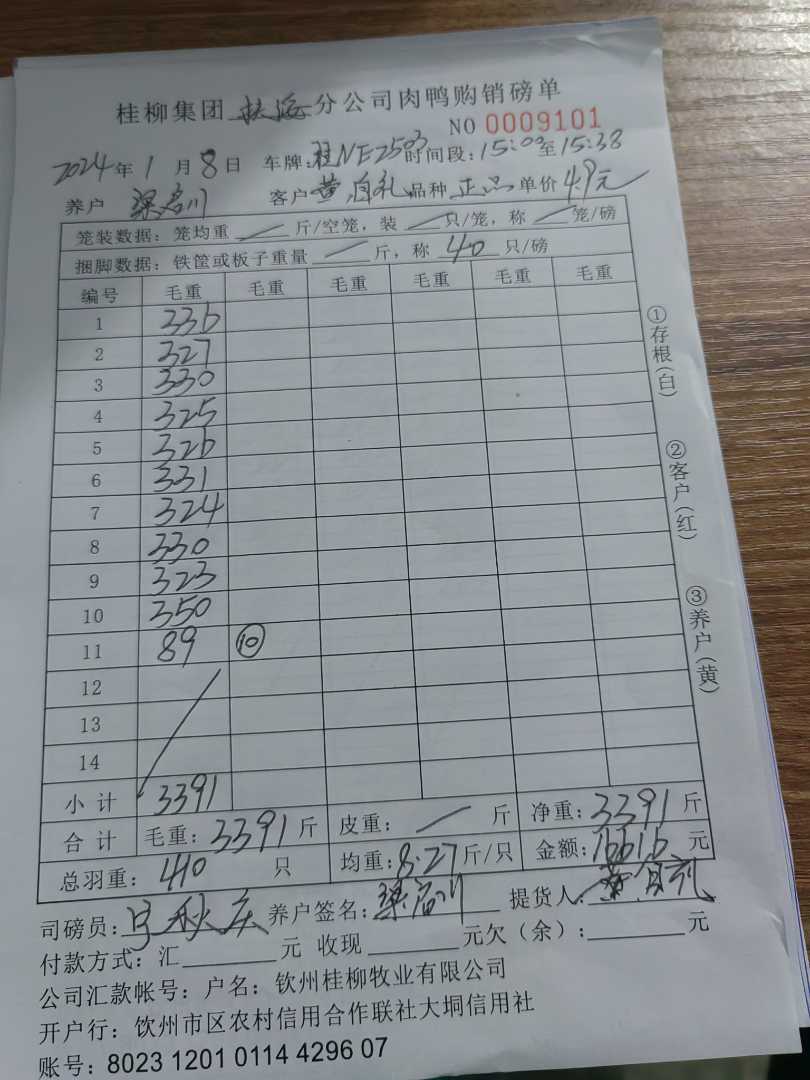 桂柳集团 扶绥 分公司肉鸭购销磅单
NO 0009101
2024年1月8日 车牌:桂NE2503 时间段:15:00至15:38
养户 梁 川 客户 黄自礼 品种 正品 单价 4.9元
笼装数据:笼均重 / 斤/空笼,装 / 只/笼,称 / 笼/磅
捆脚数据:铁筐或板子重量 / 斤,称 40 只/磅
编号 毛重 毛重 毛重 毛重 毛重 毛重
1 336
2 327
3 330
4 325
5 326
6 331
7 324
8 330
9 323
10 350
11 89 ⑩
12
13
14
小计 3391
合计 毛重:3391斤 皮重: / 斤 净重:3391斤
总羽重:410 只 均重:8.27斤/只 金额:16616元
司磅员: 秋庆 养户签名:梁 川 提货人:黄自礼
付款方式:汇________元 收现________元欠(余):________元
公司汇款帐号:户名:钦州桂柳牧业有限公司
开户行:钦州市区农村信用合作联社大垌信用社
账号:8023 1201 0114 4296 07
①存根(白)
②客户(红)
③养户(黄)